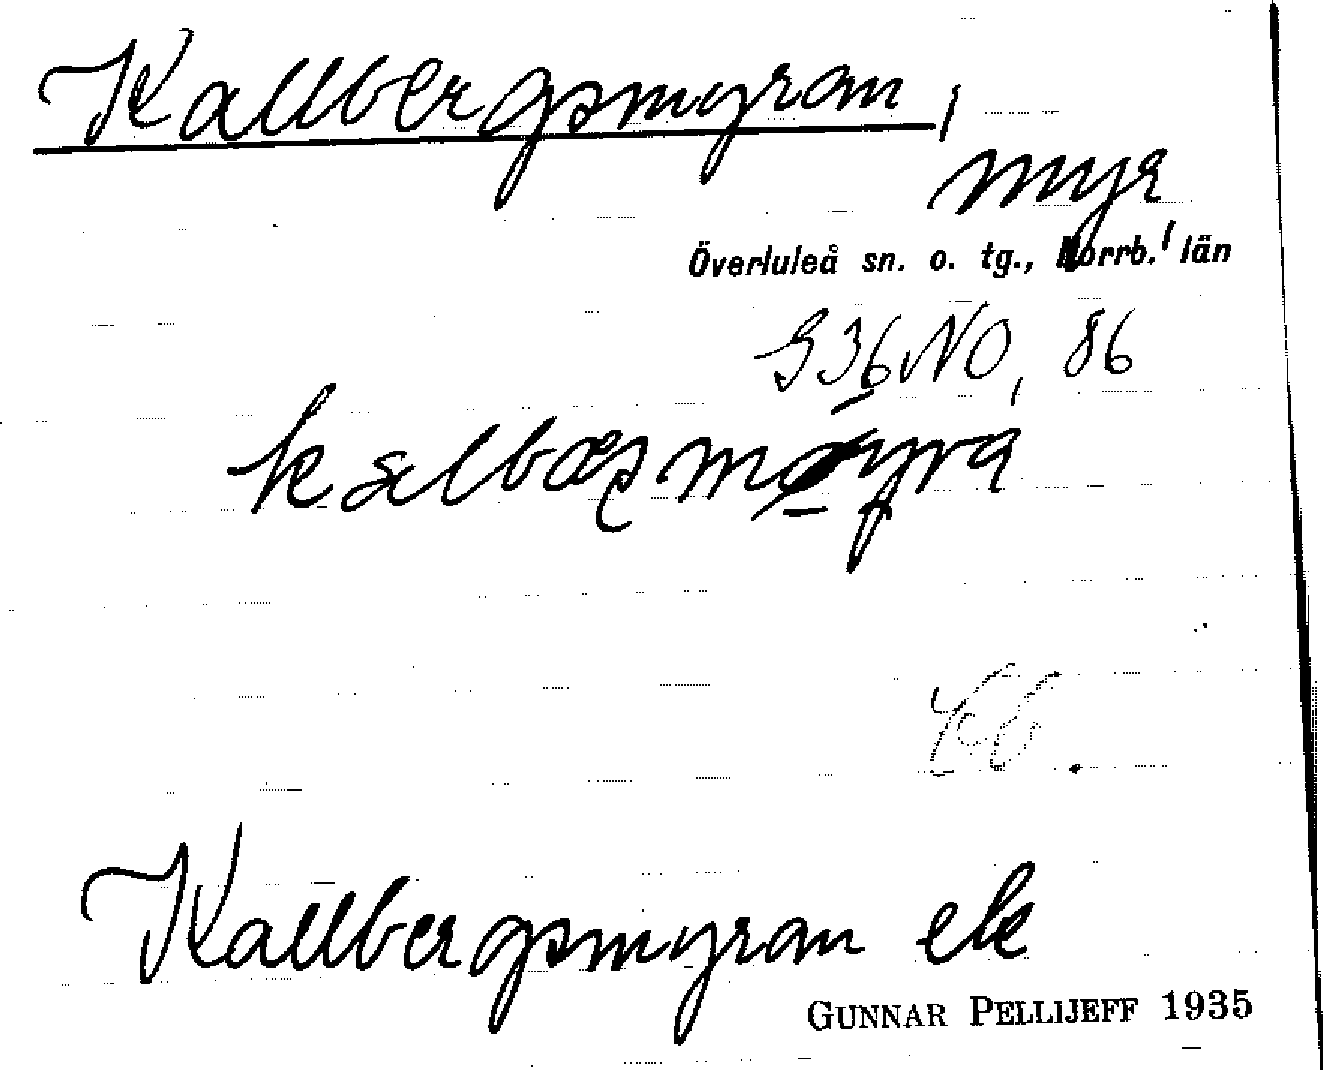 Kallbergsmyran,
myr
Överluleå sn. o. tg., Norrb. län
S36NO, 86
Kb.
Kallbergsmyran ek
GUNNAR PELLIJEFF 1935